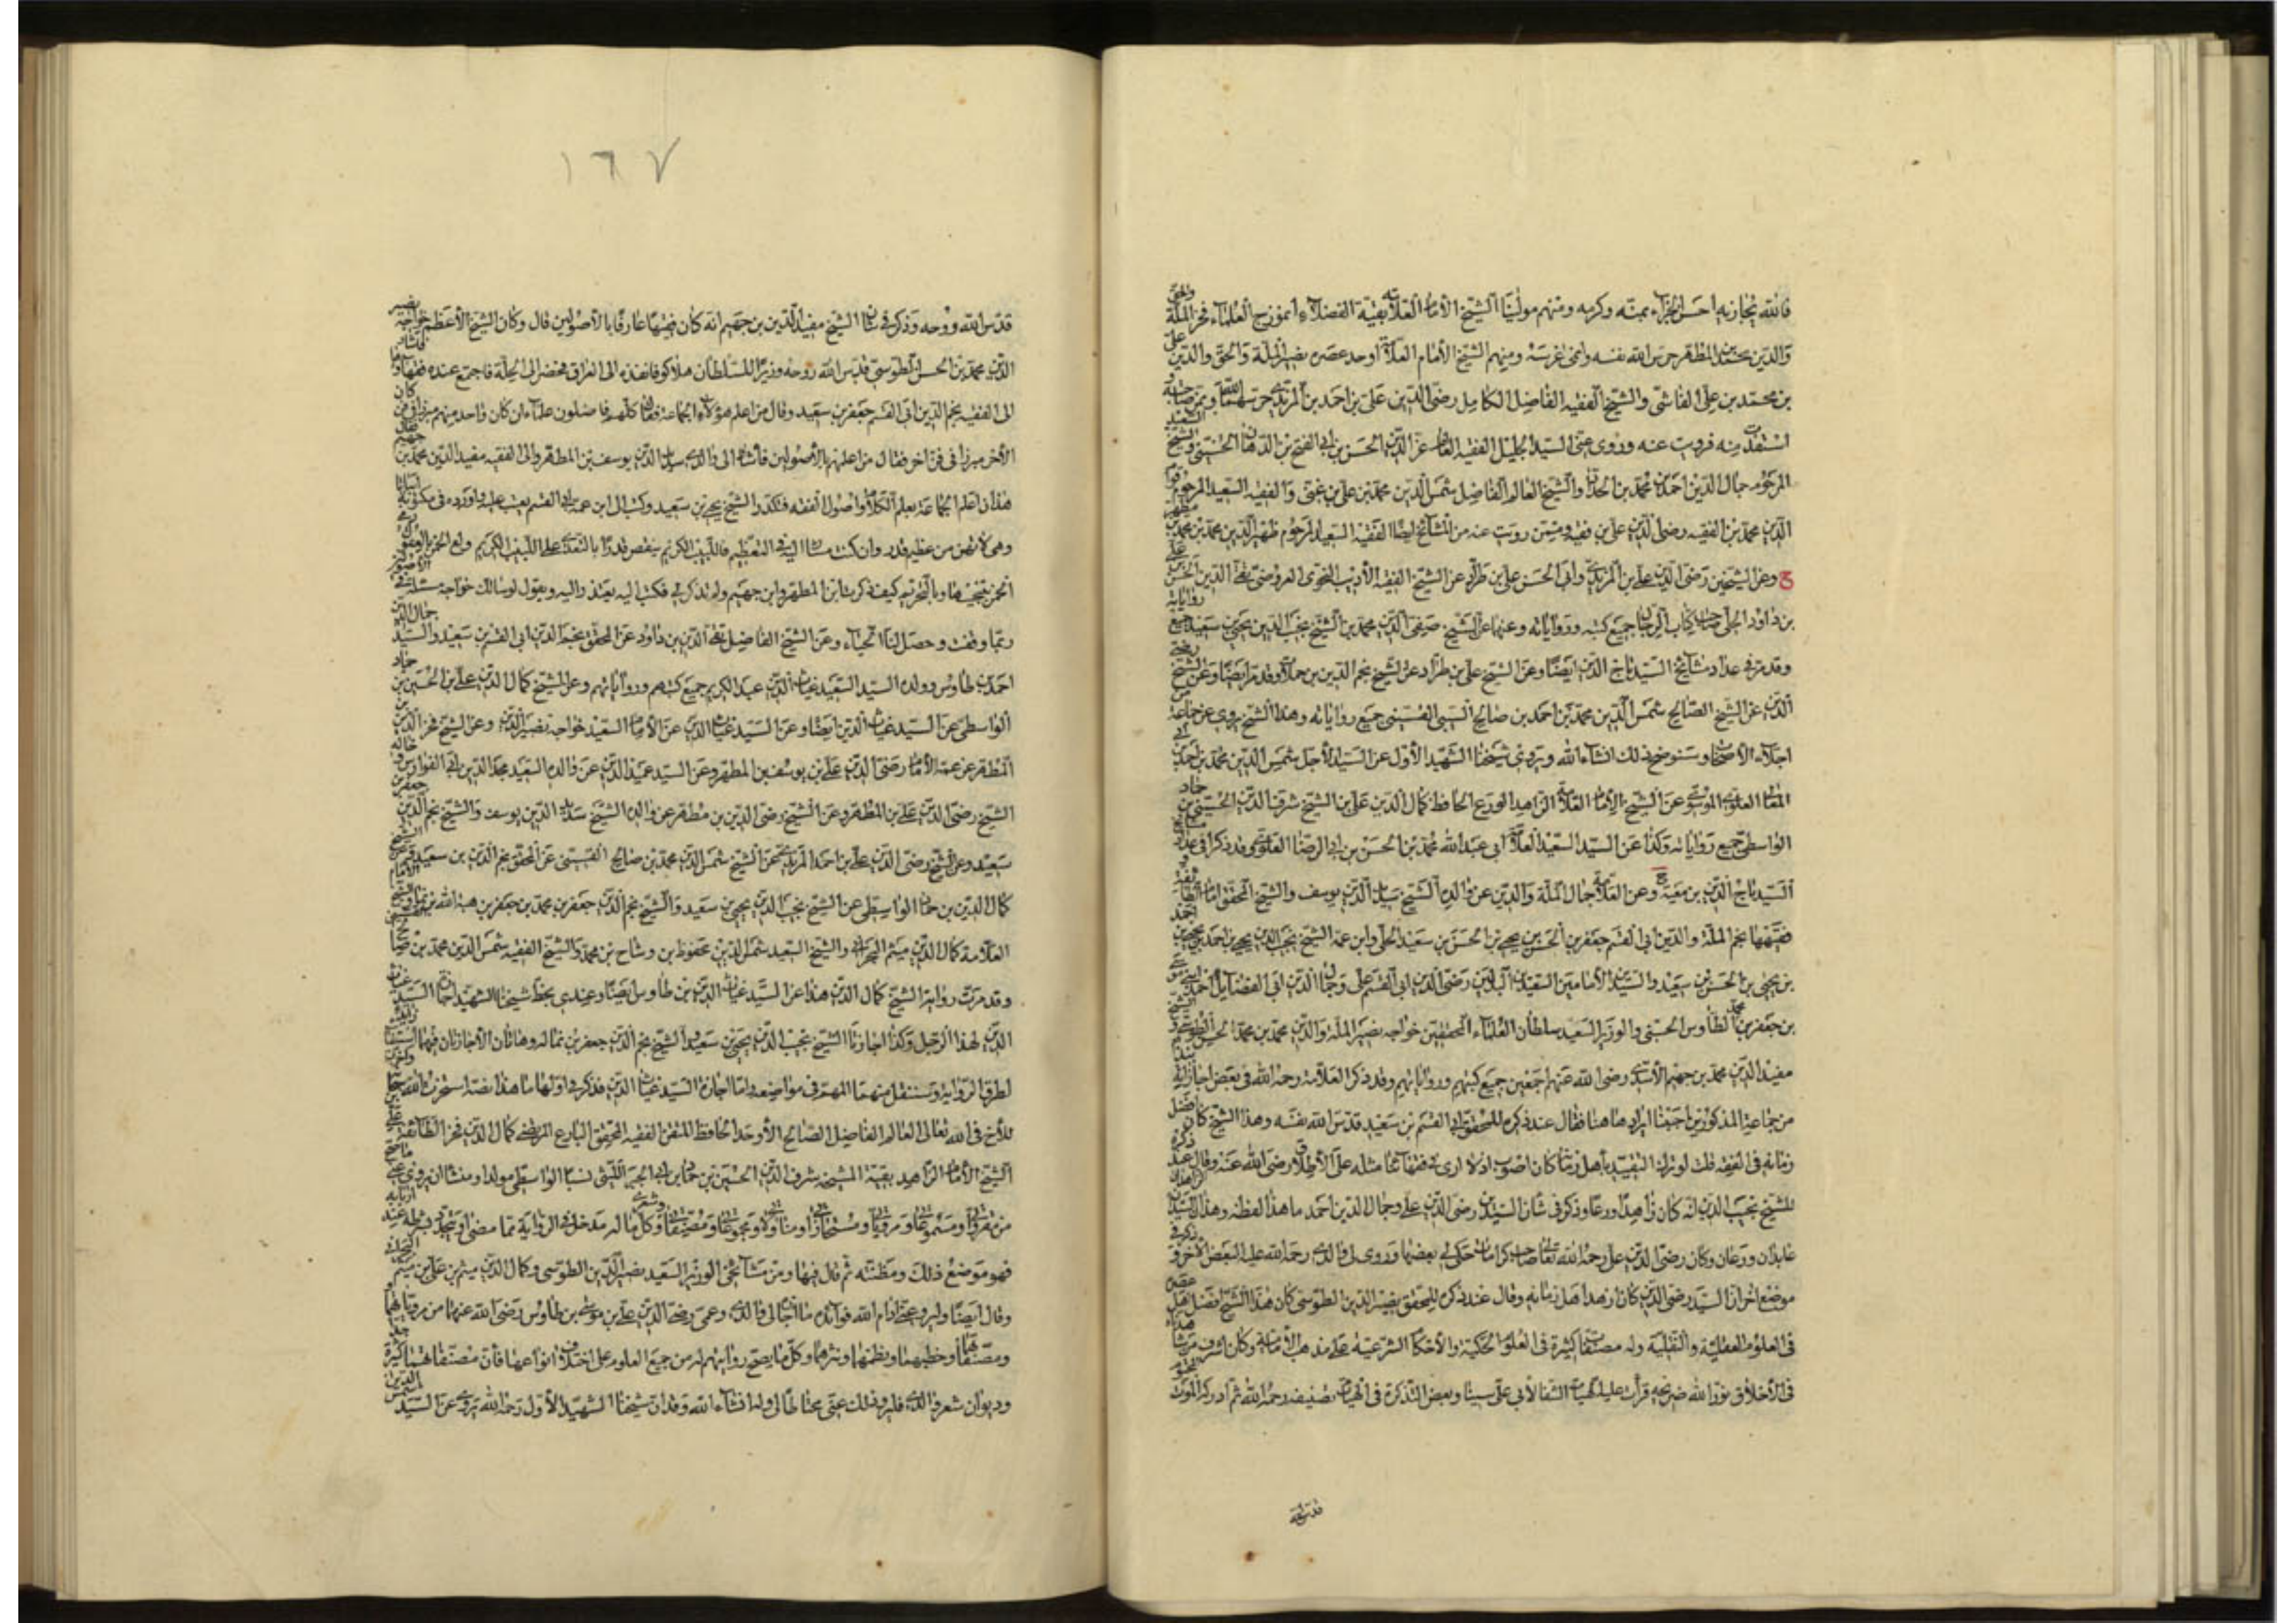 فالله يجازيه احسن الجزاء بمنه وكرمه ومنهم مولينا الشيخ الامام العلامة بقية الفضلاء انموزج العلماء فخر الملة والحق
والدين محمد بن المطهر حرس الله نفسه ومنهم الشيخ الامام العلامة اوحد عصره نصير الملة والحق والدين على
بن محمد بن على القاشى والشيخ الفقيه الفاضل الكامل رضى الدين على بن احمد المزيدى حرسهما الله
استفدت منه فرويت عنه وروى عنى السيد الجليل الفقيه العالم عز الدين الحسن بن ابى الفتح بن الدهان الحسينى والشيخ السعيد
المرحوم جمال الدين احمد بن محمد بن الحداد والشيخ العالم الفاضل شمس الدين محمد بن على بن غنى والفقيه السعيد المرحوم قوام
الدين محمد بن الفقيه رضى الدين على بن وممن رويت عنه من المشايخ ايضا الفقيه السعيد المرحوم ظهير الدين محمد بن محمد بن مطهر
وعن الشيخين رضى الدين على بن المزيدى وابى الحسن على بن طراد عن الشيخ الفقيه الاديب النحوى العروضى تقى الدين الحسن بن على
بن داود الحلى صاحب كتاب الرجال جميع كتبه ورواياته وعنهما عن الشيخ صفى الدين محمد بن الشيخ نجيب الدين يحيى بن سعيد جميع رواياته
وقد مر فى عداد مشايخ السيد تاج الدين ايضا وعن الشيخ على بن طراد عن الشيخ نجم الدين بن حملات وقد مر ايضا وعن الشيخ رضى
الدين عن الشيخ الصالح شمس الدين محمد بن احمد بن صالح السيبى القسينى جميع رواياته وهذا الشيخ يروى عن جماعة من
اجلاء الاصحاب وسنوضح ذلك انشاء الله ويروى شيخنا الشهيد الاول عن السيد الاجل شمس الدين محمد بن احمد بن ابى
المعالى العلوى الموسوى عن الشيخ الامام العلامة الزاهد الورع الحافظ كمال الدين على بن الشيخ شرف الدين الحسين بن حماد
الواسطى جميع رواياته وكذا عن السيد السعيد العلامة ابى عبد الله محمد بن الحسن بن ابى الرضا العلوى وقد ذكرا فى عداد مشايخ
السيد تاج الدين بن معية وعن العلامة جمال الملة والدين عن والده الشيخ سديد الدين يوسف والشيخ المحقق امام
فقيهها نجم الملة والدين ابى القسم جعفر بن الحسن بن يحيى بن الحسن بن سعيد الحلى وابن عمه الشيخ نجيب الدين يحيى بن احمد
بن يحيى بن الحسن بن سعيد والسيدين الامامين السعيدين رضى الدين ابى القسم على وجمال الدين ابى الفضايل احمد ابنى موسى
بن جعفر بن محمد الطاوس الحسنى والوزير السعيد سلطان العلماء المحققين خواجه نصير الملة والدين محمد بن محمد بن الحسن الطوسى والشيخ
مفيد الدين محمد بن جهيم الاسدى رضى الله عنهم اجمعين جميع كتبهم ورواياتهم وقد ذكر العلامة رحمه الله فى بعض اجازاته
من جماعة المذكورين احببنا ايرادها هنا فقال عند ذكره للمحقق ابى القسم بن سعيد قدس الله نفسه وهذا الشيخ كان افضل
زمانه فى الفقه قلت لو ترك التقييد باهل زمانه كان اصوب اذ لا ارى فى فقهائنا مثله على الاطلاق رضى الله عنه وقال عند ذكره
للشيخ نجيب الدين انه كان زاهدا ورعا وذكر فى شان السيدين رضى الدين على وجمال الدين احمد ما هذا لفظه وهذان السيدان زاهدان
عابدان ورعان وكان رضى الدين على رحمه الله تعالى صاحب كرامات حكى لى بعضها وروى لى والدى رحمة الله عليه البعض الاخر وذكر فى
موضع اخر ان السيد رضى الدين كان ازهد اهل زمانه وقال عند ذكره للمحقق نصير الدين الطوسى كان هذا الشيخ افضل اهل عصره
فى العلوم العقلية والنقلية وله مصنفات كثيرة فى العلوم الحكمية والاحكام الشرعية على مذهب الامامية وكان اشرف من شاهدناه
فى الاخلاق نور الله ضريحه قرأت عليه الهيات الشفا لابى على سينا وبعض التذكرة فى الهيئة تصنيفه رحمه الله ثم ادركه الموت المحتوم
قدس الله
١٦٧
قدس الله روحه وذكر فى شان الشيخ مفيد الدين بن جهيم انه كان فقيها عارفا بالاصولين قال وكان الشيخ الاعظم خواجه نصير
الدين محمد بن الحسن الطوسى قدس الله روحه وزيرا للسلطان هلاكو فانفذه الى العراق فحضر الى الحلة فاجتمع عنده فقهاؤها فاشار
الى الفقيه نجم الدين ابى القسم جعفر بن سعيد وقال من اعلم هؤلاء الجماعة فقال كلهم فاضلون علماء ان كان واحد منهم مبرزا فى فن كان
الاخر مبرزا فى فن اخر فقال من اعلمهم بالاصولين فاشار الى والدى سديد الدين يوسف بن المطهر والى الفقيه مفيد الدين محمد بن جهيم فقال
هذان اعلم الجماعة بعلم الكلام واصول الفقه فتكدر الشيخ يحيى بن سعيد وكتب الى ابن عمه ابى القسم يعتب عليه واورد فى مكتوبه ابياتا
وهى لا تهن من عظيم قدر وان كنت مشارا اليه فى التعظيم فاللبيب الكريم ينقص قدرا بالتعدى على اللبيب الكريم ولع الخمر بالعقول رمى
الخمر بتنجيسها وبالتحريم كيف ذكرت ابن المطهر وابن جهيم ولم تذكرنى فكتب اليه يعتذر اليه ويقول لو سالك خواجه مسئلة فى الاصولين
ربما وقفت وحصل لنا الحياء وعن الشيخ الفاضل تقى الدين بن داود عن المحقق نجم الدين ابى القسم بن سعيد والسيد جمال الدين
احمد بن طاوس وولده السيد السعيد غياث الدين عبد الكريم جميع كتبهم ورواياتهم وعن الشيخ كمال الدين على بن الحسين بن حماد
الواسطى عن السيد غياث الدين ايضا وعن السيد غياث الدين عن الامام السعيد خواجه نصير الدين وعن الشيخ فخر الدين بن
المطهر عن عمه الامام رضى الدين على بن يوسف بن المطهر وعن السيد عميد الدين عن والده السعيد مجد الدين ابى الفوارس و خاله
الشيخ رضى الدين على بن المطهر وعن الشيخ رضى الدين بن مطهر عن والده الشيخ سديد الدين يوسف والشيخ نجم الدين جعفر بن
سعيد وعن الشيخ رضى الدين على بن احمد المزيدى عن الشيخ شمس الدين محمد بن صالح القسينى عن المحقق نجم الدين بن سعيد وعن الشيخ
كمال الدين بن حماد الواسطى عن الشيخ نجيب الدين يحيى بن سعيد والشيخ نجم الدين جعفر بن محمد بن جعفر بن هبة الله بن نما والشيخ الامام
العلامة كمال الدين ميثم البحرانى والشيخ السعيد شمس الدين محفوظ بن وشاح بن محمد والشيخ الفقيه شمس الدين محمد بن صالح
وقد مرت رواية الشيخ كمال الدين هذا عن السيد غياث الدين بن طاوس ايضا وعندى بخط شيخنا الشهيد اجازة السيد غياث
الدين لهذا الرجل وكذا اجازتا الشيخ نجيب الدين يحيى بن سعيد والشيخ نجم الدين جعفر بن نما له وهاتان الاجازتان فيهما
لطرق الرواية وسننقل منهما المهم فى مواضعه واما اجازة السيد غياث الدين فذكر فى اولها ما هذا نصه استخرت الله
للاخ فى الله تعالى العالم الفاضل الصالح الاوحد الحافظ المتقن الفقيه المحقق البارع المرتضى كمال الدين فخر الطائفة على بن
الشيخ الامام الزاهد بقية المشيخة شرف الدين الحسين بن حماد بن ابى الخير الليثى نسبا الواسطى مولدا ومنشأ ان يروى عنى ما صح
من مقروا ومسموعا ومرويا ومستجازا ومناولة ومجموعا ومصنفا وكل ما له مدخل فى الرواية مما مضى او يتجدد
فهو موضع ذلك ومظنته ثم قال فيها ومن مشايخى الوزير السعيد نصير الدين الطوسى وكمال الدين ميثم بن على بن ميثم البحرانى
وقال ايضا وليرو عنى ادام الله فوائده ما اجازه لى والدى وعمى رضى الدين على بن موسى بن طاوس رضى الله عنهما من مروياتهما
ومصنفاتهما وخطبهما ونظمهما ونثرهما وكل ما يصح روايتهم له من جميع العلوم على اختلاف انواعها فان مصنفاتهما كثيرة
وديوان شعر والدى فليرو ذلك عنى محتاطا لى وله انشاء الله وقد ان شيخنا الشهيد الاول رحمه الله يروى عن السيد شمس الدين